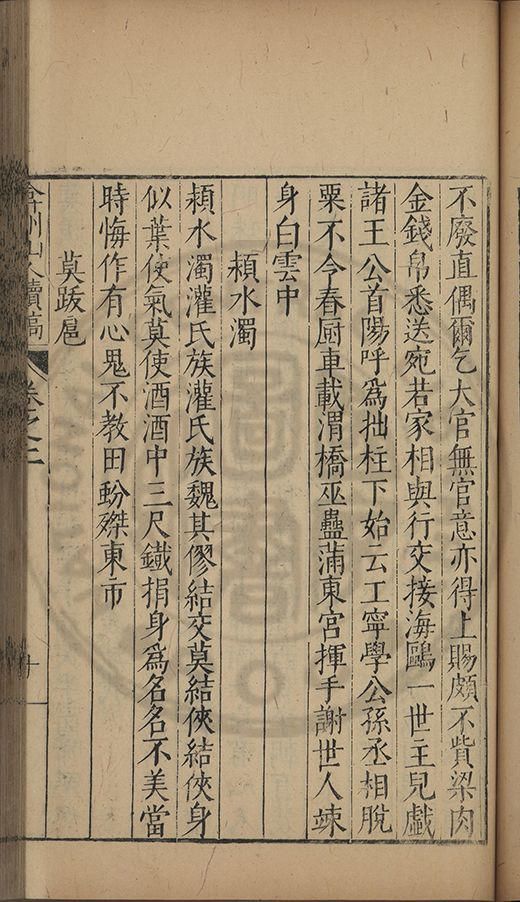 不廢直偶爾乞大官無官意亦得上賜頗不貲粱肉
金錢帛悉送宛若家相與行交接海鷗一世主兒戲
諸王公首陽呼爲拙柱下始云工寧學公孫丞相脫
粟不今春厨車載渭橋巫蠱蒲東宮揮手謝世人竦
身白雲中
潁水濁
潁水濁灌氏族灌氏族魏其僇結交莫結俠結俠身
似葉使氣莫使酒酒中三尺鐵捐身爲名名不美當
時悔作有心鬼不教田蚡殫東市
莫跋扈
弇州山人續稿 卷之二 十